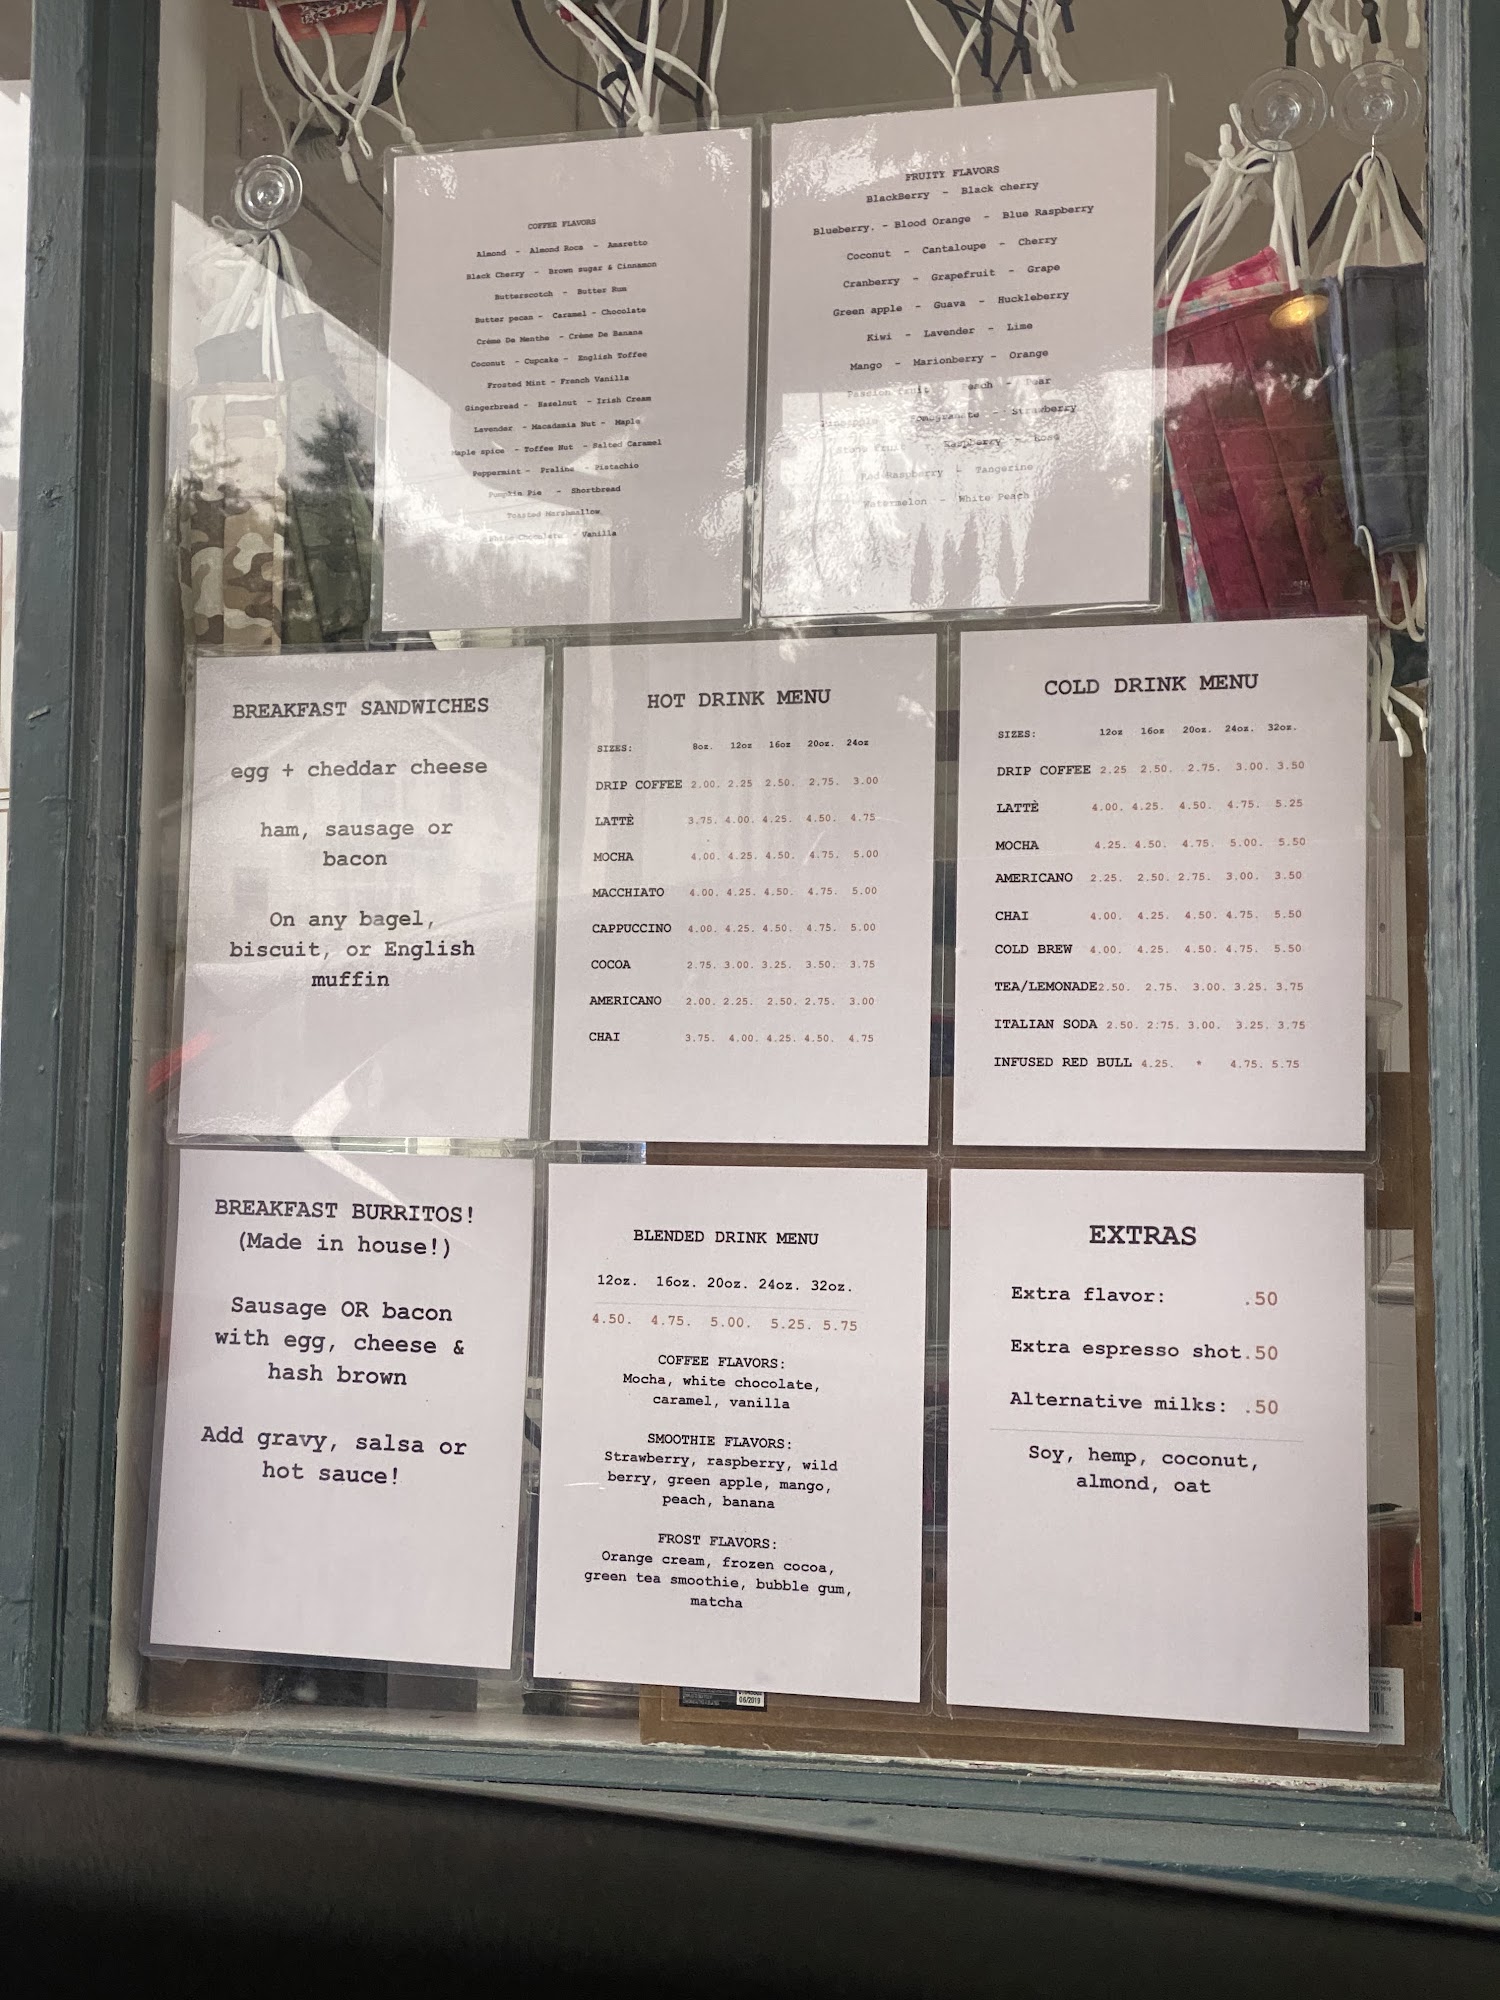 COFFEE FLAVORS
Almond - Almond Roca - Amaretto
Black Cherry - Brown sugar & Cinnamon
Butterscotch - Butter Rum
Butter pecan - Caramel - Chocolate
Crème De Menthe - Crème De Banana
Coconut - Cupcake - English Toffee
Frosted Mint - French Vanilla
Gingerbread - Hazelnut - Irish Cream
Lavender - Macadamia Nut - Maple
Maple spice - Toffee Nut - Salted Caramel
Peppermint - Praline - Pistachio
Pumpkin Pie - Shortbread
Toasted Marshmallow
White Chocolate - Vanilla
FRUITY FLAVORS
BlackBerry - Black cherry
Blueberry. - Blood Orange - Blue Raspberry
Coconut - Cantaloupe - Cherry
Cranberry - Grapefruit - Grape
Green apple - Guava - Huckleberry
Kiwi - Lavender - Lime
Mango - Marionberry - Orange
Passion fruit - Peach - Pear
Pineapple - Pomegranate - Strawberry
Stone fruit - Raspberry - Rose
Red Raspberry - Tangerine
Watermelon - White Peach
BREAKFAST SANDWICHES
egg + cheddar cheese
ham, sausage or
bacon
On any bagel,
biscuit, or English
muffin
HOT DRINK MENU
SIZES: 8oz. 12oz 16oz 20oz. 24oz
DRIP COFFEE 2.00. 2.25 2.50. 2.75. 3.00
LATTÈ 3.75. 4.00. 4.25. 4.50. 4.75
MOCHA 4.00. 4.25. 4.50. 4.75. 5.00
MACCHIATO 4.00. 4.25. 4.50. 4.75. 5.00
CAPPUCCINO 4.00. 4.25. 4.50. 4.75. 5.00
COCOA 2.75. 3.00. 3.25. 3.50. 3.75
AMERICANO 2.00. 2.25. 2.50. 2.75. 3.00
CHAI 3.75. 4.00. 4.25. 4.50. 4.75
COLD DRINK MENU
SIZES: 12oz 16oz 20oz. 24oz. 32oz.
DRIP COFFEE 2.25 2.50. 2.75. 3.00. 3.50
LATTÈ 4.00. 4.25. 4.50. 4.75. 5.25
MOCHA 4.25. 4.50. 4.75. 5.00. 5.50
AMERICANO 2.25. 2.50. 2.75. 3.00. 3.50
CHAI 4.00. 4.25. 4.50. 4.75. 5.50
COLD BREW 4.00. 4.25. 4.50. 4.75. 5.50
TEA/LEMONADE 2.50. 2.75. 3.00. 3.25. 3.75
ITALIAN SODA 2.50. 2.75. 3.00. 3.25. 3.75
INFUSED RED BULL 4.25. * 4.75. 5.75
BREAKFAST BURRITOS!
(Made in house!)
Sausage OR bacon
with egg, cheese &
hash brown
Add gravy, salsa or
hot sauce!
BLENDED DRINK MENU
12oz. 16oz. 20oz. 24oz. 32oz.
4.50. 4.75. 5.00. 5.25. 5.75
COFFEE FLAVORS:
Mocha, white chocolate,
caramel, vanilla
SMOOTHIE FLAVORS:
Strawberry, raspberry, wild
berry, green apple, mango,
peach, banana
FROST FLAVORS:
Orange cream, frozen cocoa,
green tea smoothie, bubble gum,
matcha
EXTRAS
Extra flavor: .50
Extra espresso shot .50
Alternative milks: .50
Soy, hemp, coconut,
almond, oat
06/2019